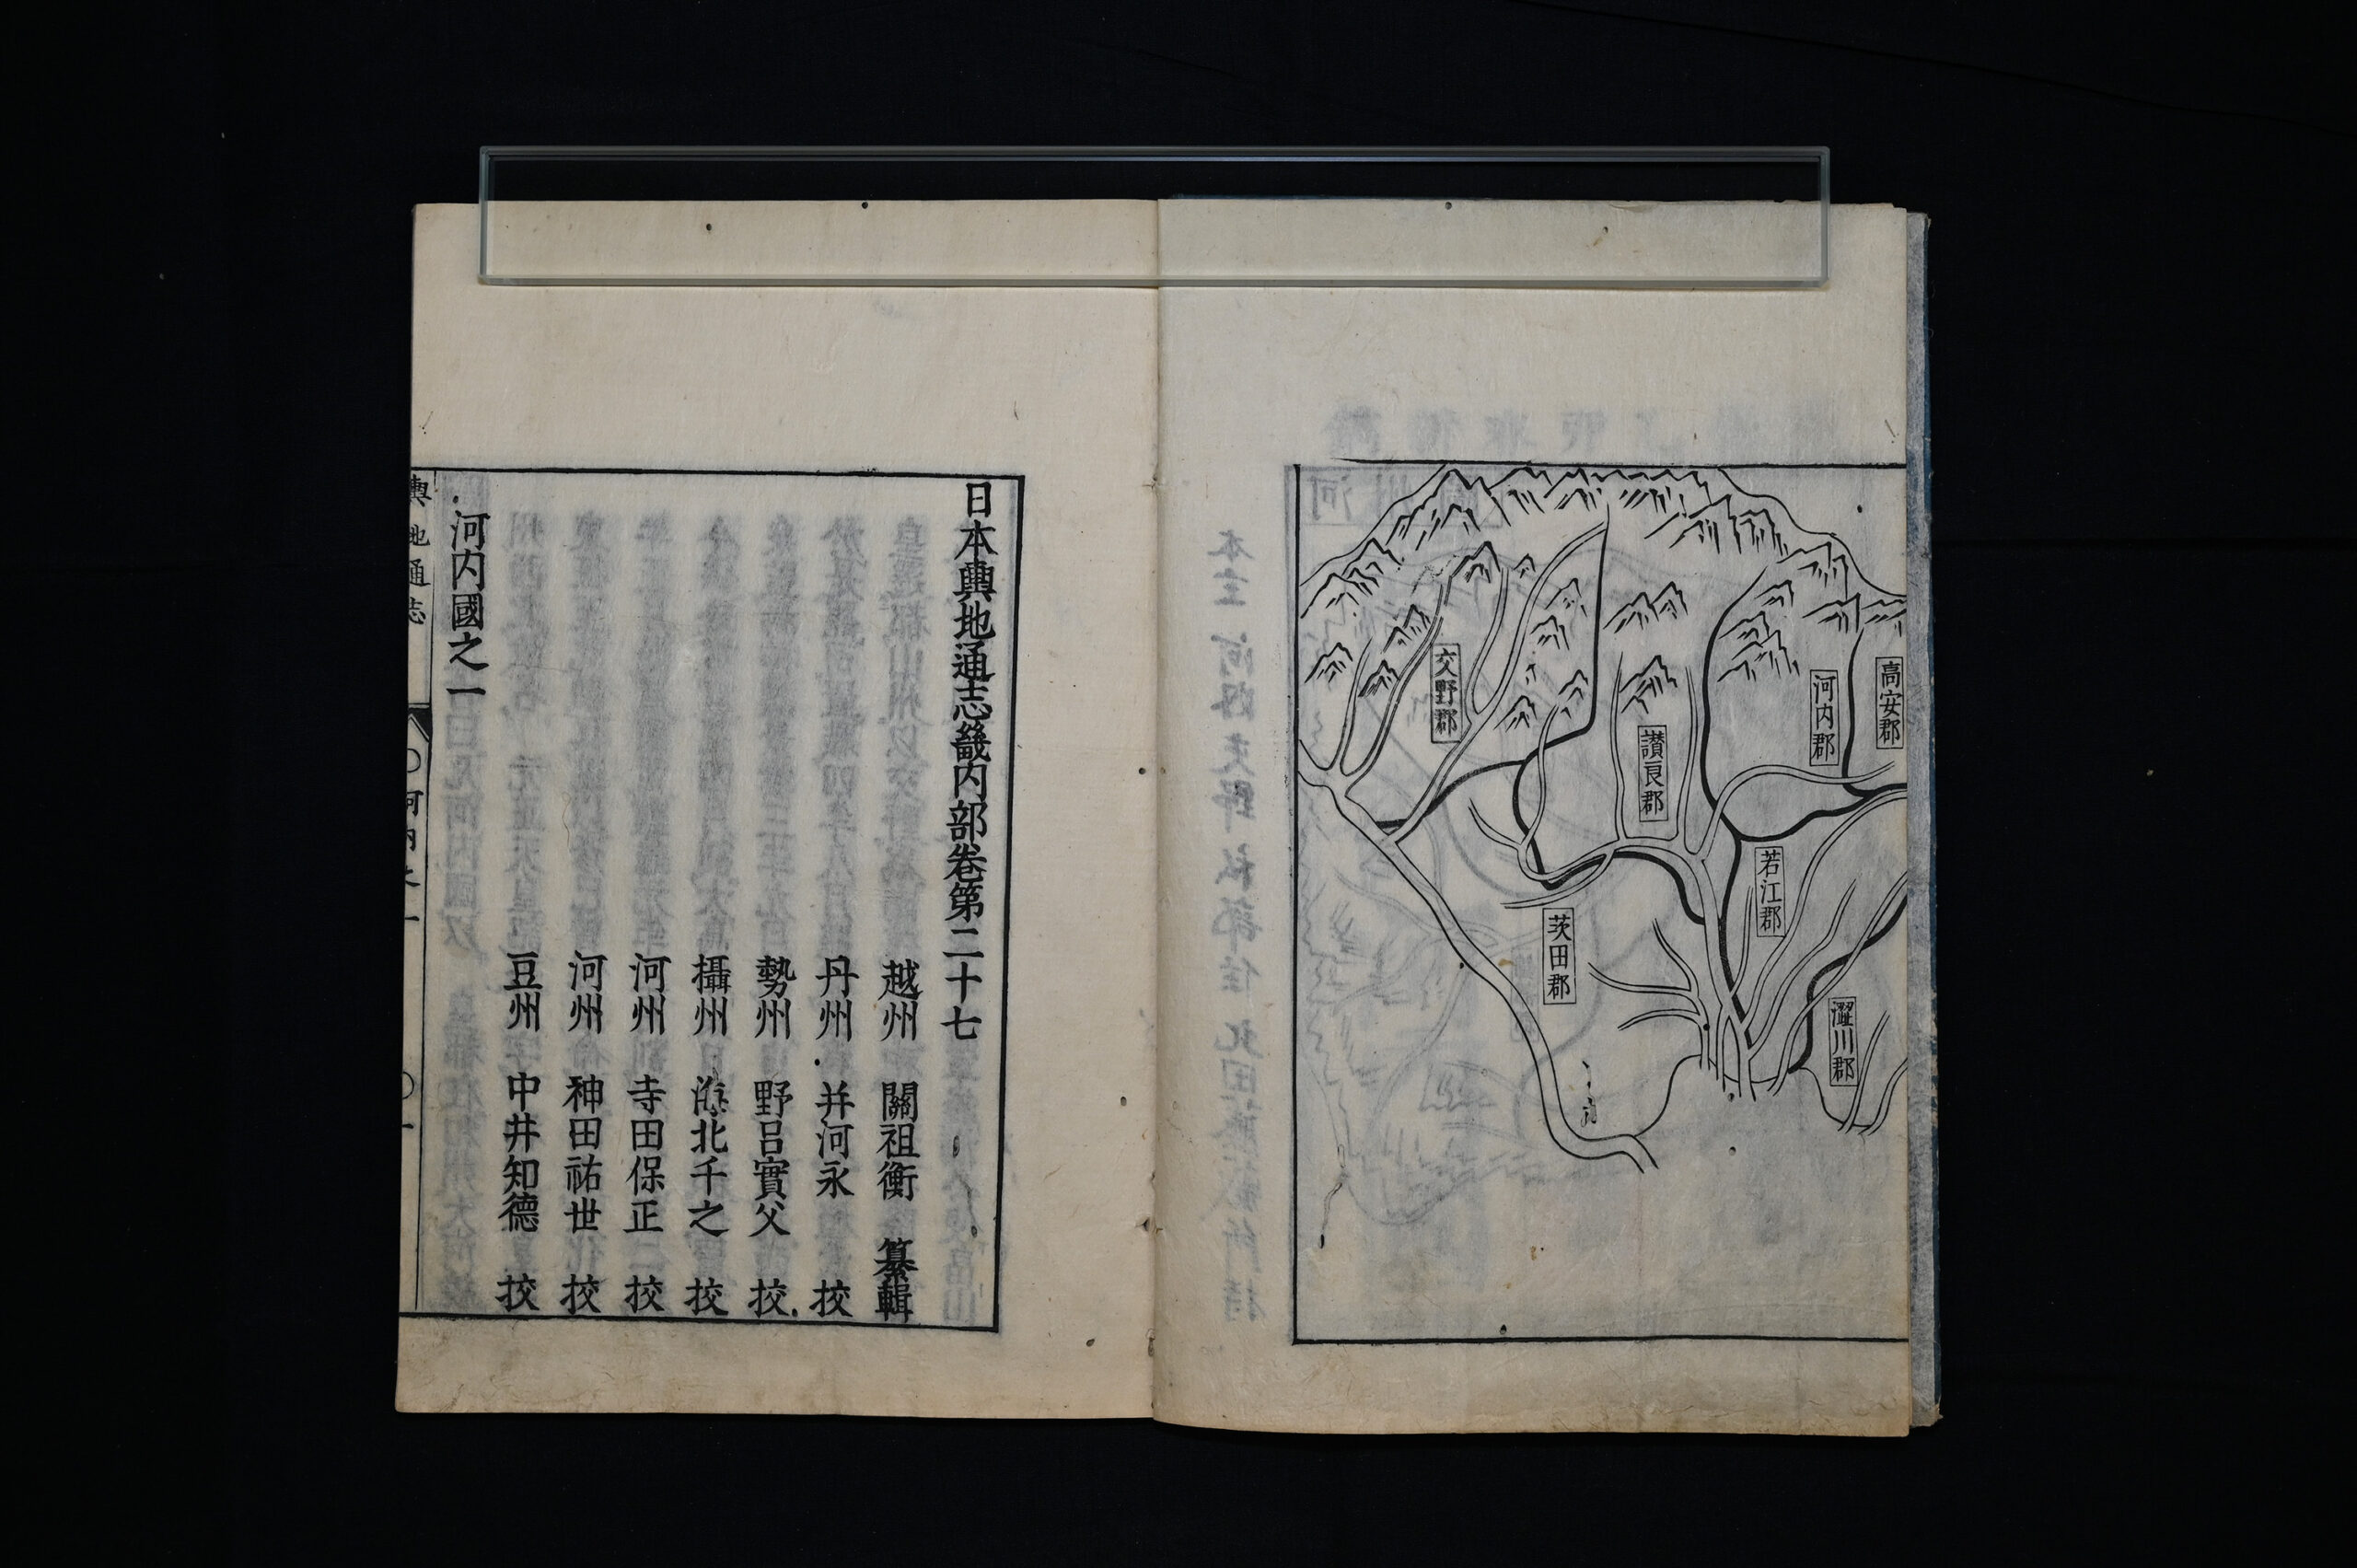 高安郡
河内郡
讃良郡
交野郡
若江郡
茨田郡
澀川郡
日本輿地通志畿内部卷第二十七
越州 關祖衡 纂輯
丹州 并河永 挍
勢州 野呂實父 挍
攝州 海北千之 挍
河州 寺田保正 挍
河州 神田祐世 挍
豆州 中井知德 挍
河内國之一
輿地通志 〇河内之一 〇一